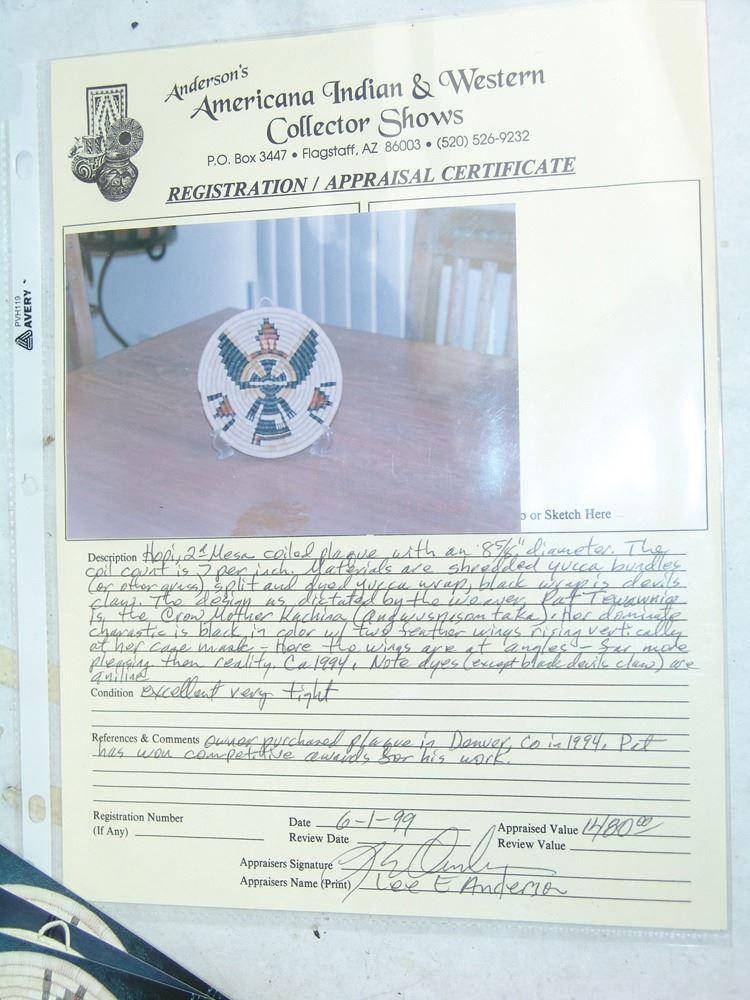 Anderson's
Americana Indian & Western
Collector Shows
P.O. Box 3447 • Flagstaff, AZ 86003 • (520) 526-9232
REGISTRATION / APPRAISAL CERTIFICATE
PVH119
AVERY
o or Sketch Here
Description Hopi, 2nd Mesa coiled plaque with an 8 5/8" diameter. The
coil count is 7 per inch. Materials are shredded yucca bundles
(or other grass) split and dyed yucca wrap, black wrap is devils
claw. The design as dictated by the weaver, Pat Tewawnia
is the Crow Mother Kachina (angwusnasomtaka). Her dominate
charastic is black in color w/ two feather wings rising vertically
at her case mask - Here the wings are at angles - far more
pleasing then reality. Ca 1994. Note dyes (except black devils claw) are
aniline.
Condition excellent very tight
References & Comments Owner purchased plaque in Denver, Co in 1994. Pat
has won competitive awards for his work.
Registration Number
(If Any)
Date 6-1-99
Review Date
Appraised Value 1480 00
Review Value
Appraisers Signature
Appraisers Name (Print) Lee E Anderson